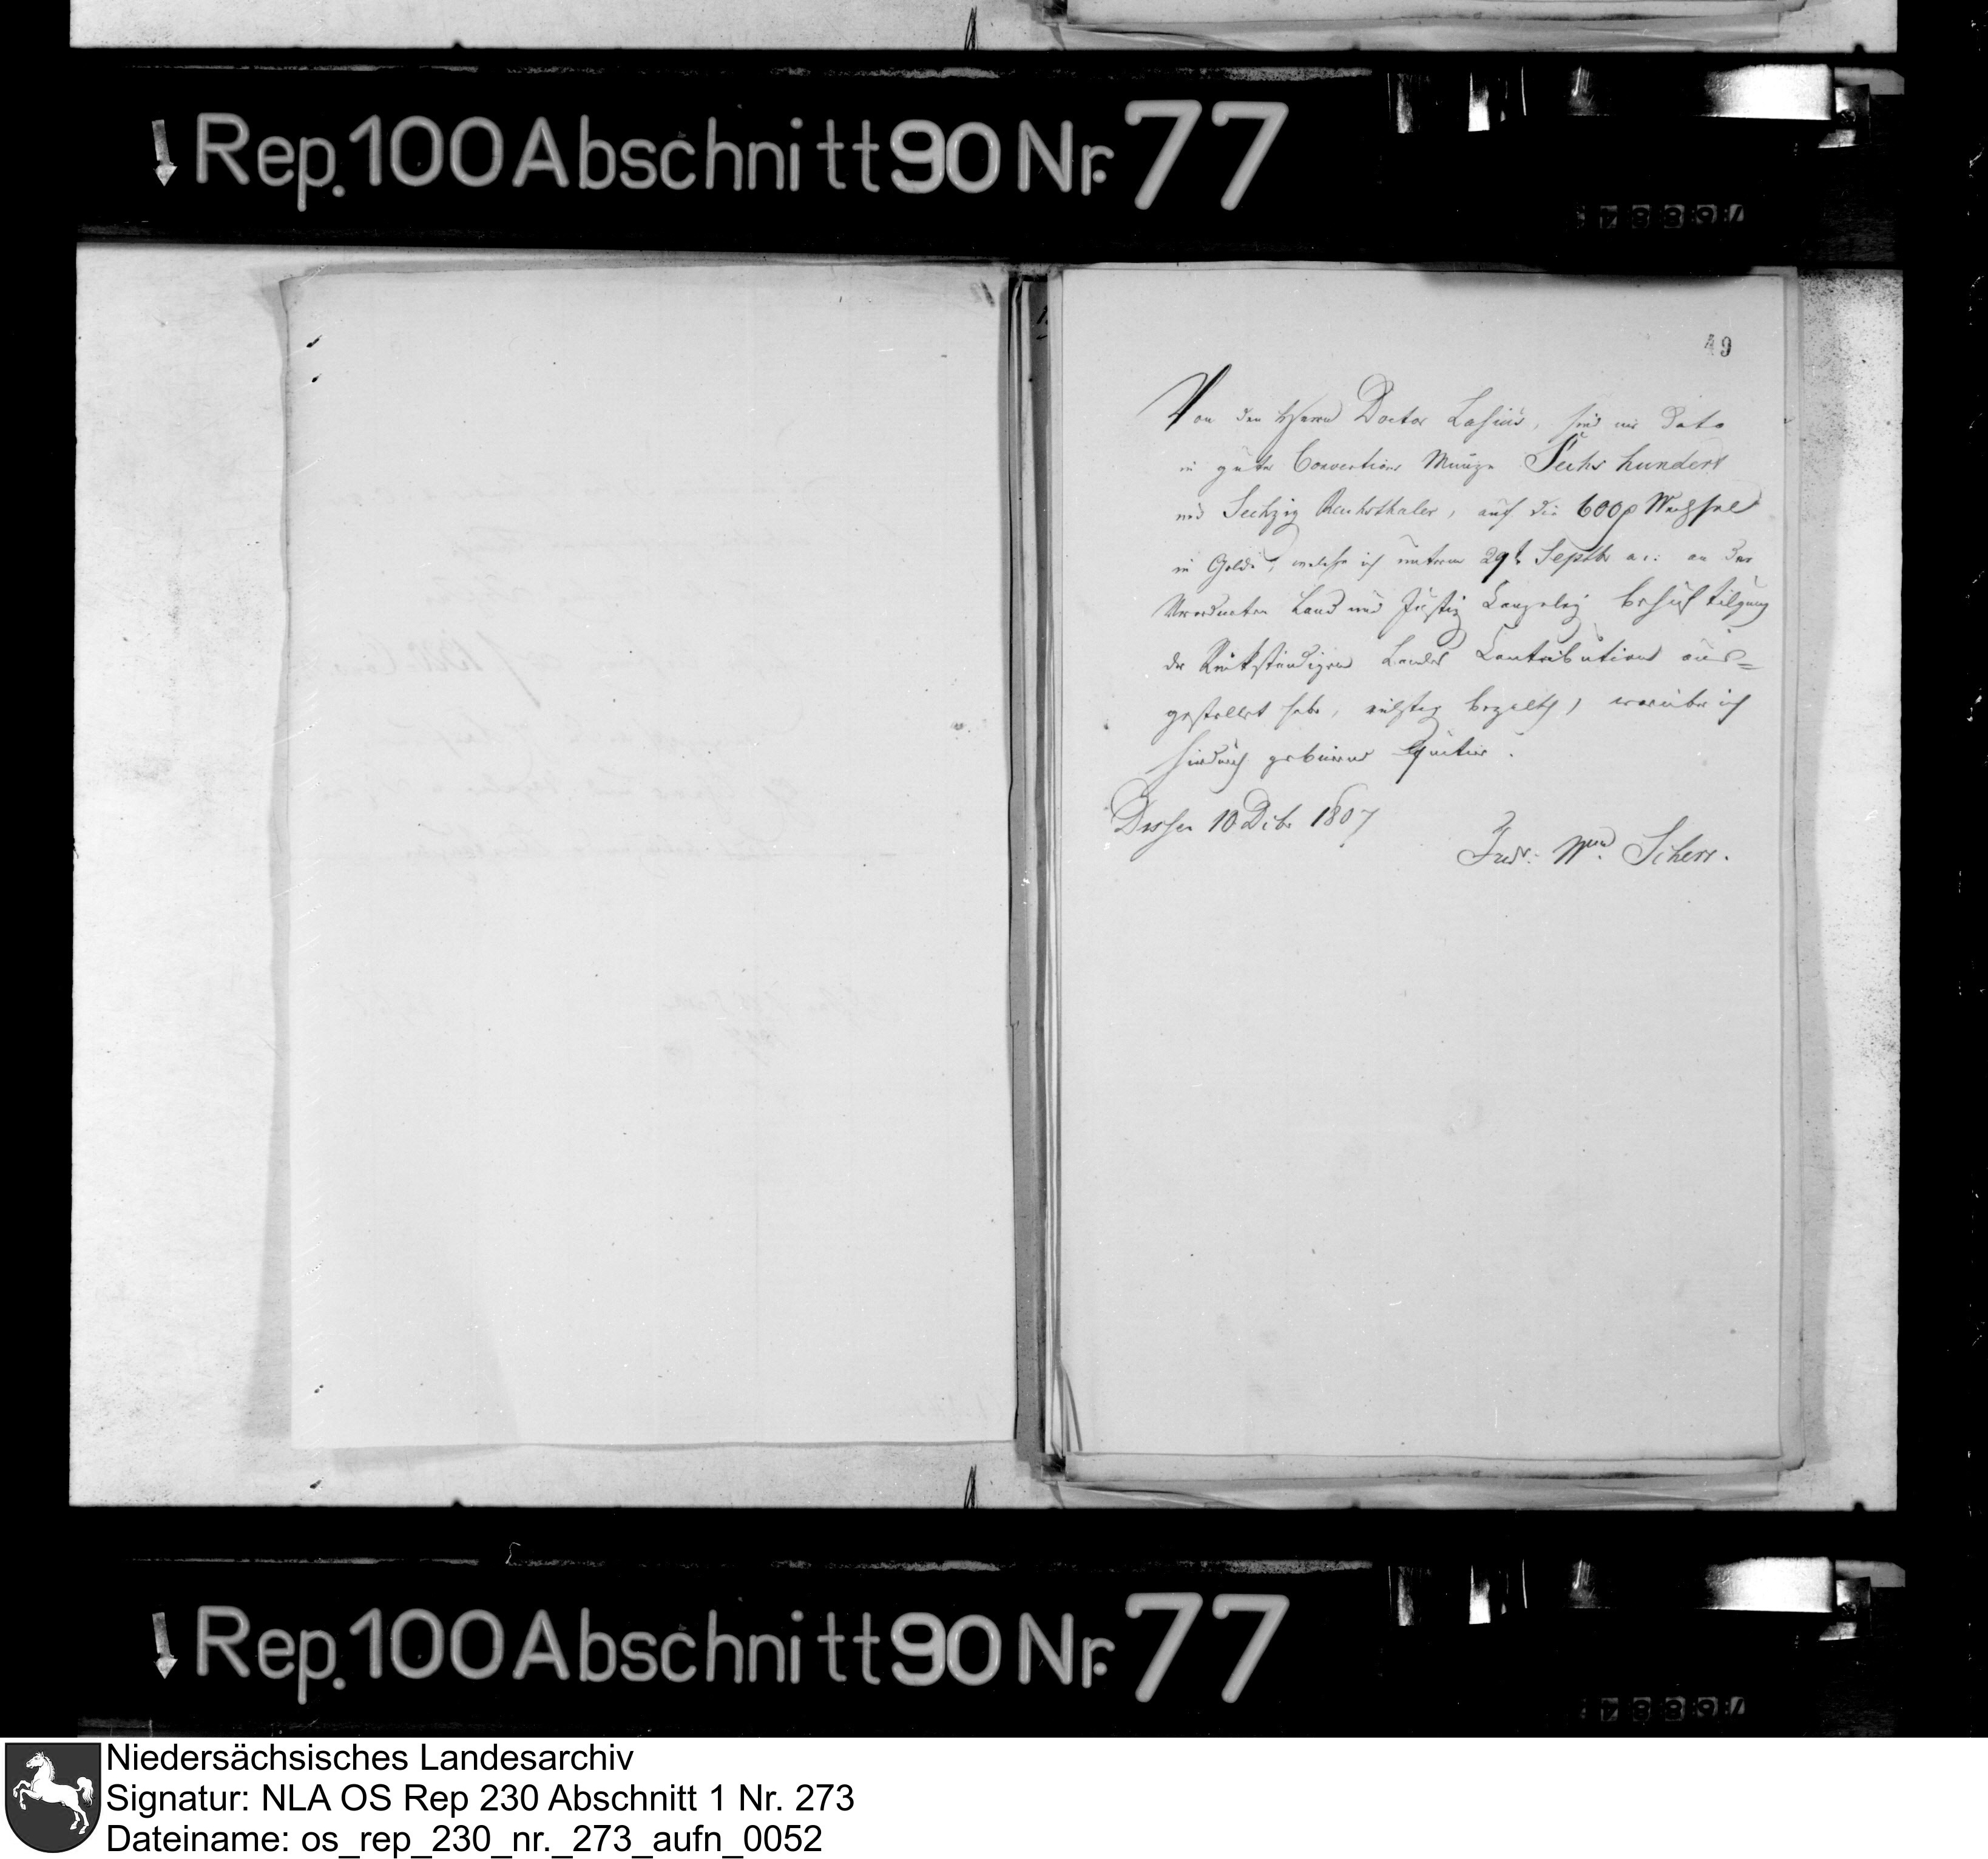 Rep. 100 Abschnitt 90 Nr. 77
49
Von den Herrn Doctor Lasius, sind mir Dato
in guter Conventions Münze Sechs hundert
und Sechzig Reichsthaler, auf die 600 Wechsel
in Golde, welche ich unterm 29t Septbr a. c. an
Land und Justiz Canzeley behuf tilgung
der Rückständigen Landes Contribution aus=
gestellet habe, richtig bezalth, worüber ich
hiedurch gebürend quitire.
10 Dcbr 1807
Fried: Wm Scherr.
Rep. 100 Abschnitt 90 Nr. 77
Niedersächsisches Landesarchiv
Signatur: NLA OS Rep 230 Abschnitt 1 Nr. 273
Dateiname: os_rep_230_nr._273_aufn_0052